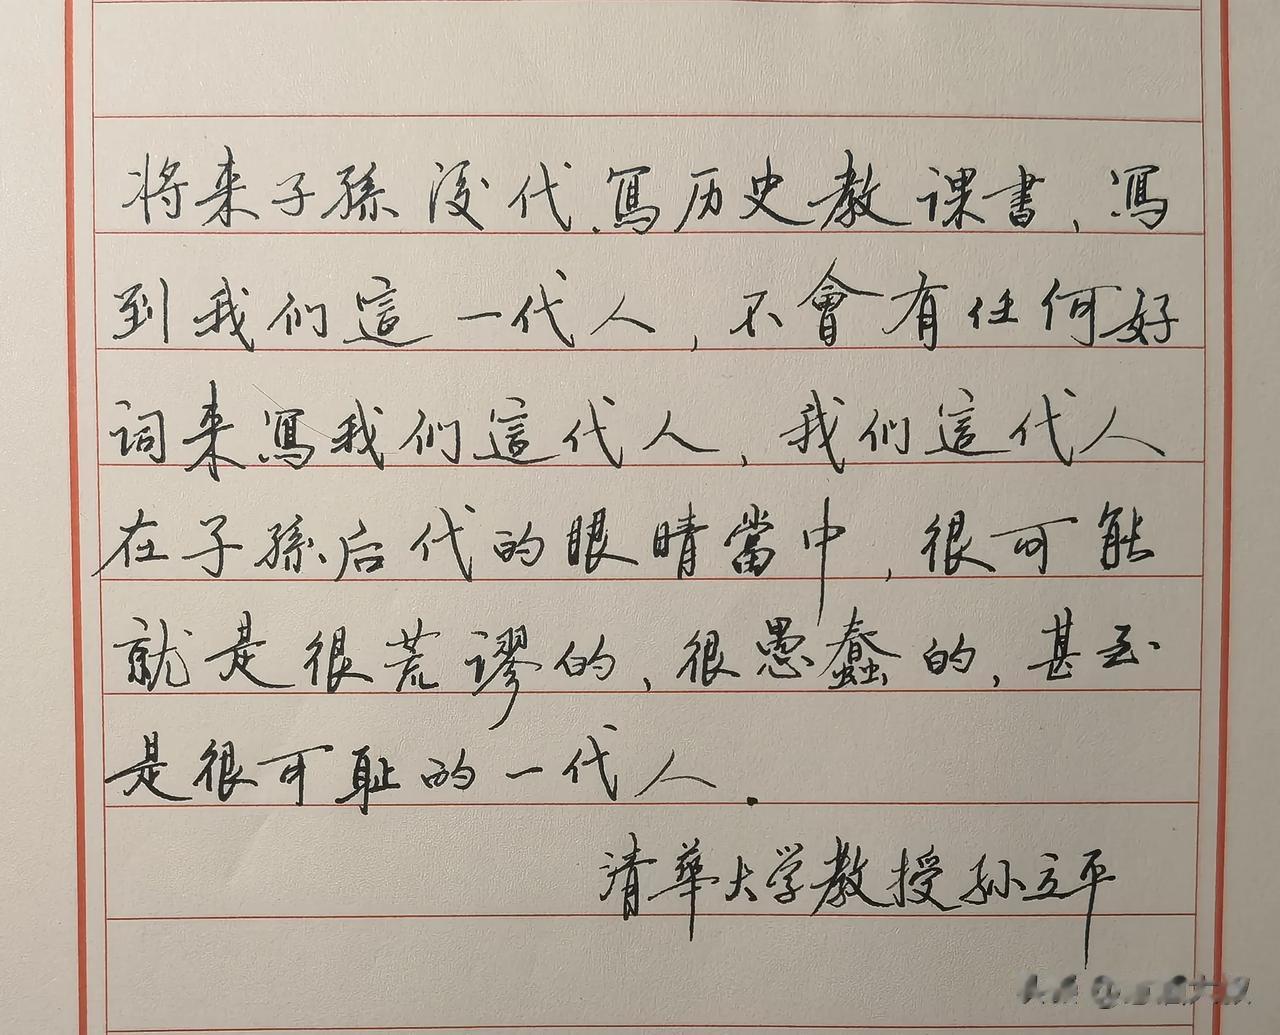 将来子孫後代.寫历史教课書,寫
到我们這一代人,不會有任何好
词来寫我们這代人,我们這代人
在子孫后代的眼睛當中,很可能
就是很荒謬的,很愚蠢的,甚至
是很可耻的一代人.
清華大学教授孙立平
头条